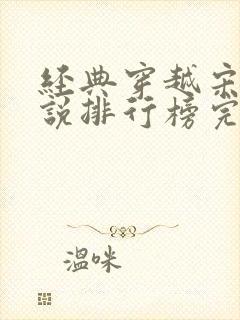 经典穿越宋
说排行榜完
温咪